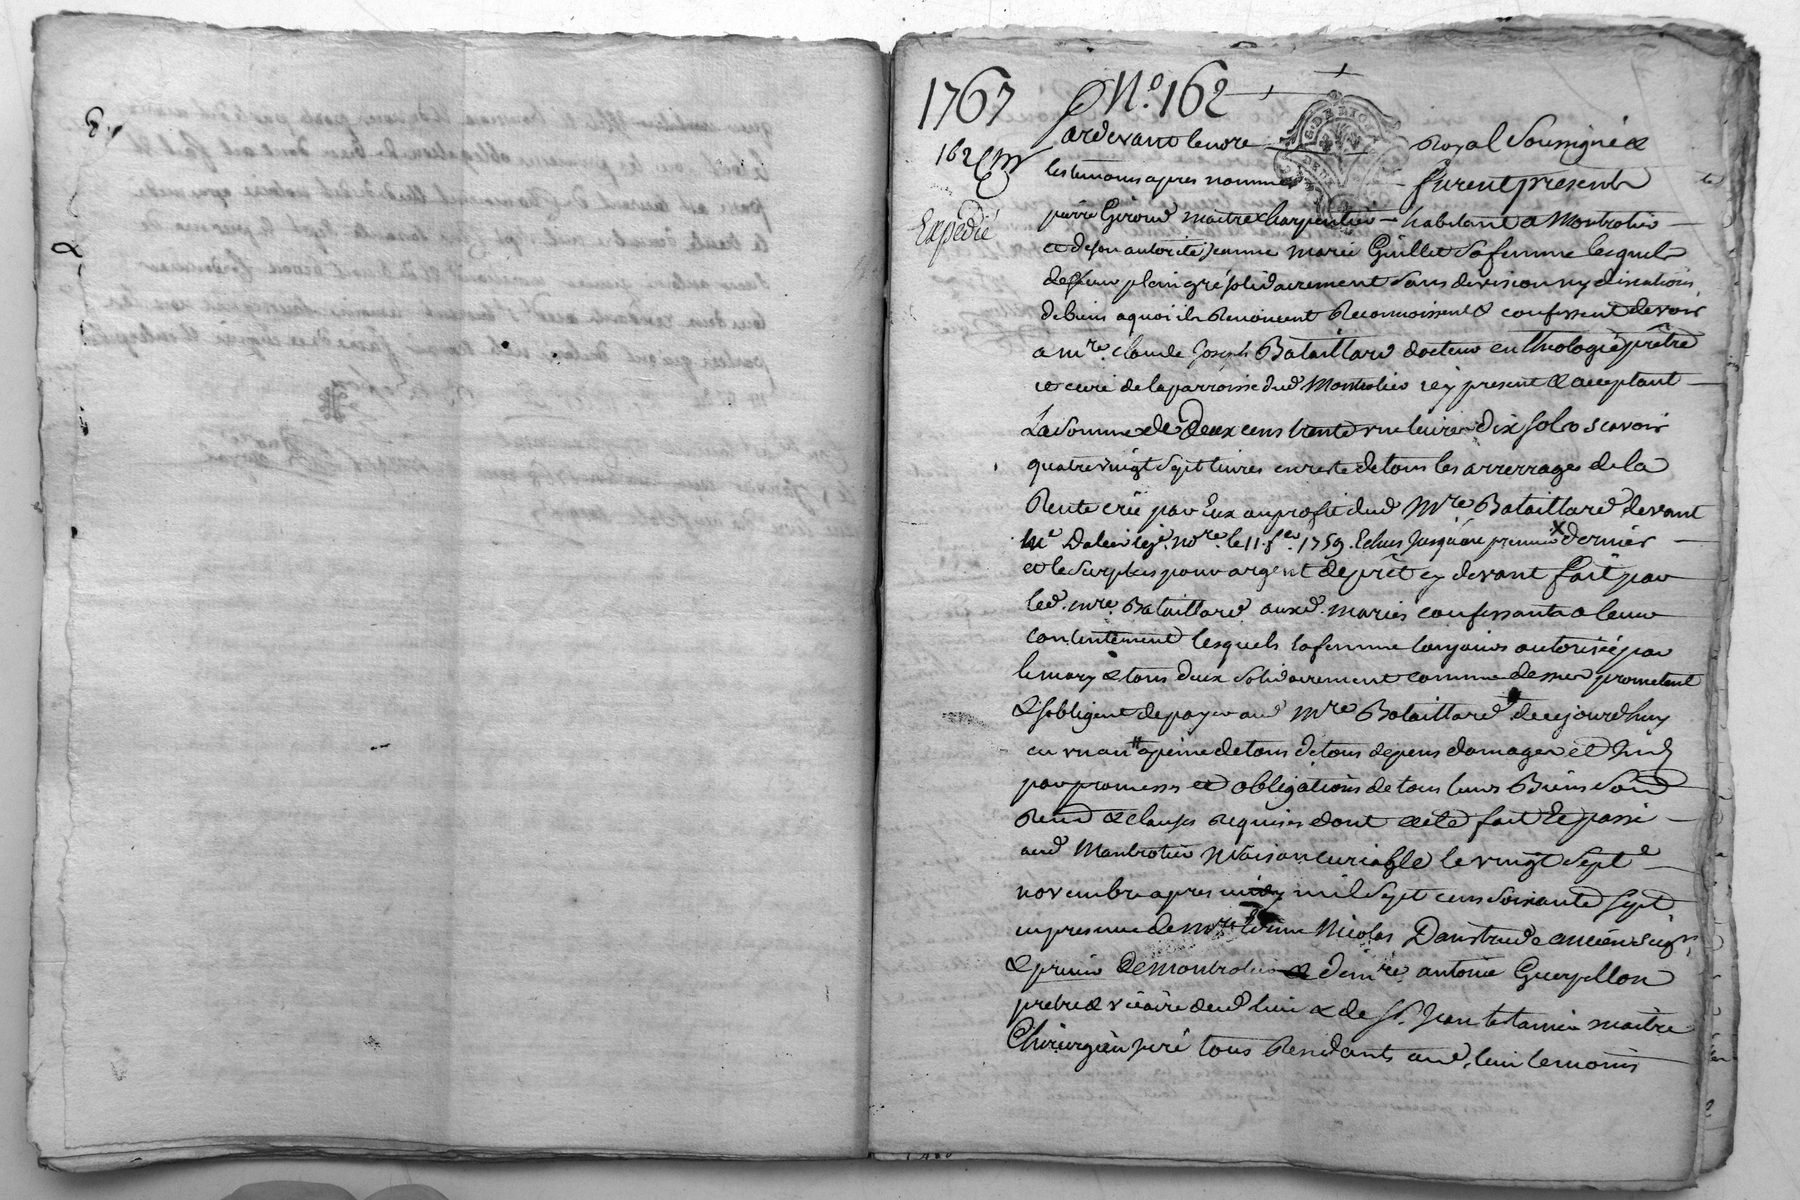 1767 N.o 162
162
Expedié
Pardevant le nore Royal Soussigné &
les temoins apres nommés furent presents
pierre Giroud maitre charpentier habitant a Montrotier
et de son autorité jeanne marie Guillet sa femme lesquels
de leur plein gré solidairement sans division ny discution
de biens a quoi ils Renoncent Reconnoissent & confessent devoir
a mre. claude Joseph Bataillard docteur en theologie prêtre
et curé de la parroisse dud Montrotier icy present & acceptant
La Somme de Deux cens trente une livres dix sols scavoir
quatre vingt Sept livres en reste de tous les arrerrages de la
Rente créé par Eux au profit dud Mre Bataillard devant
Me nore. le 11. 1759. Echus Jusqu'au premier dernier
et le Surplus pour argent de prêt cy devant fait par
led. mre Bataillard auxd. mariés confessants a leur
contentement lesquels la femme toujours autorisée par
le mary & tous deux solidairement comme dessus promettent
& s'obligent de payer aud Mre Bataillard de cejourdhuy
en un an a peine de tous de tous depens domages et
par promesses et obligations de tous leurs Biens
Renon & clauses Requises dont acte fait & passé
aud Montrotier Maison curialle le vingt Sept
novembre apres midy mil Sept cens soixante sept
en presence de Nicolas Daustrude ancien Seigr
& prieur de Montrotier & de mre. antoine Guerpillon
prebtre & vicaire dud lieu & de Sr. Jean maitre
Chirurgien juré tous Residants aud. lieu temoins